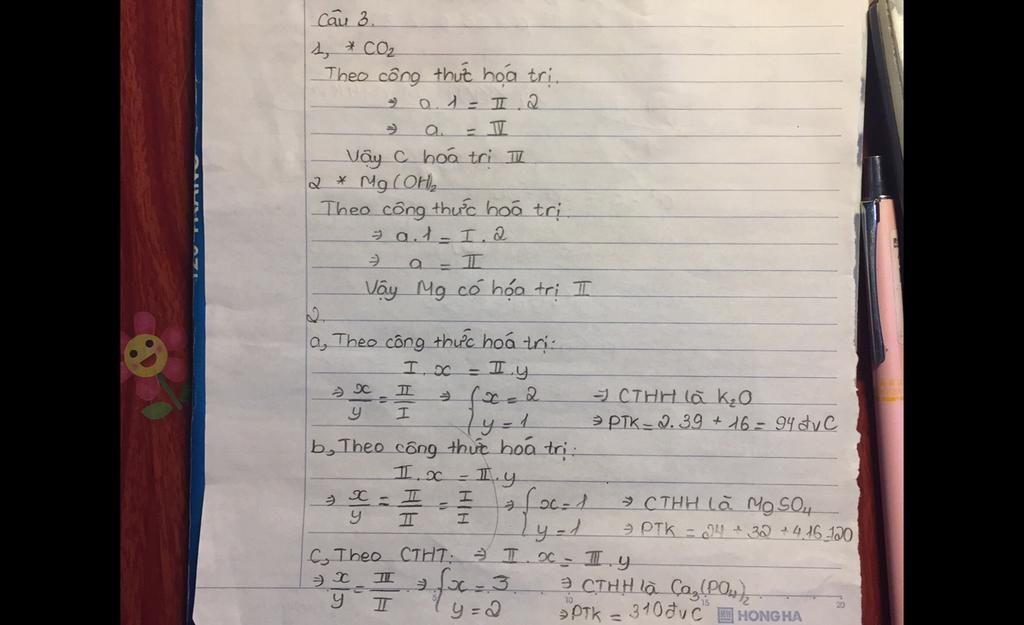 Câu 3.
1, * CO2
Theo công thức hóa trị.
⇒ a.1 = II.2
⇒ a. = IV
Vậy C hoá trị IV
2 * Mg(OH)2
Theo công thức hoá trị.
⇒ a.1 = I.2
⇒ a = II
Vậy Mg có hóa trị II
2.
a, Theo công thức hoá trị:
I.x = II.y
⇒ x/y = II/I ⇒ { x = 2 ⇒ CTHH là K2O
y = 1 ⇒ PTK = 2.39 + 16 = 94 đvC
b, Theo công thức hoá trị:
II.x = II.y
⇒ x/y = II/II = I/I ⇒ { x = 1 ⇒ CTHH là MgSO4
y = 1 ⇒ PTK = 24 + 32 + 4.16=120
c, Theo CTHT: ⇒ II.x = III.y
⇒ x/y = III/II ⇒ { x = 3 ⇒ CTHH là Ca3(PO4)2
y = 2 ⇒ PTK = 310 đvC
10 15 20
HONG HA